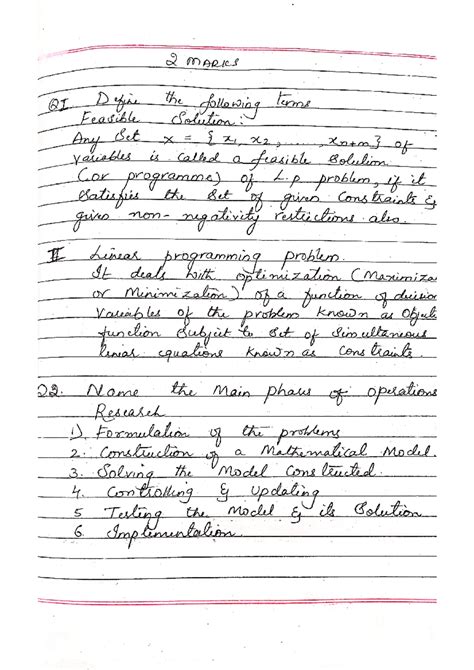 2 MARKS
Q1 Define the following terms
Feasible Solution:
Any Set x = { x1, x2, ..., xn+m} of
variables is called a feasible Solution
(or programme) of L.p problem, if it
Satisfies the Set of given Constraints &
given non-negativity restrictions also.
II Linear programming problem.
It deals with optimization (Maximiza
or Minimization) of a function of decision
variables of the problem known as Objecti
function Subject to Set of Simultaneous
linear equations known as Constraints.
Q2. Name the Main phases of operations
Research
1) Formulation of the problems
2. Construction of a Mathematical Model.
3. Solving the Model Constructed.
4. Controlling & Updating
5 Testing the Model & its Solution
6. Implementation.